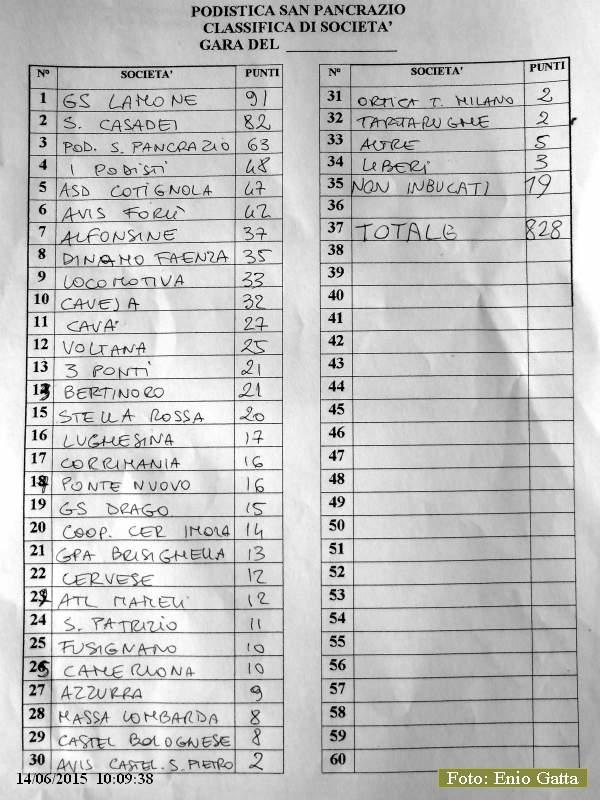 PODISTICA SAN PANCRAZIO
CLASSIFICA DI SOCIETA'
GARA DEL
N° SOCIETA' PUNTI
1 GS LAMONE 91
2 S. CASADEI 82
3 POD. S. PANCRAZIO 63
4 I PODISTI 48
5 ASD COTIGNOLA 47
6 AVIS FORLÌ 42
7 ALFONSINE 37
8 DINAMO FAENZA 35
9 LOCOMOTIVA 33
10 CAVEJA 32
11 CAVA' 27
12 VOLTANA 25
13 3 PONTI 21
13 BERTINORO 21
15 STELLA ROSSA 20
16 LUGHESINA 17
17 CORRIMANIA 16
17 PONTE NUOVO 16
19 GS DRAGO 15
20 COOP. CER IMOLA 14
21 GPA BRISIGHELLA 13
22 CERVESE 12
22 ATL MAMELI 12
24 S. PATRIZIO 11
25 FUSIGNANO 10
25 CAMERLONA 10
27 AZZURRA 9
28 MASSA LOMBARDA 8
29 CASTEL BOLOGNESE 8
30 AVIS CASTEL. S. PIETRO 2
N° SOCIETA' PUNTI
31 ORTICA T. MILANO 2
32 TARTARUGHE 2
33 ALTRE 5
34 LIBERI 3
35 NON INBUCATI 19
36
37 TOTALE 828
38
39
40
41
42
43
44
45
46
47
48
49
50
51
52
53
54
55
56
57
58
59
60
14/06/2015 10:09:38
Foto: Enio Gatta